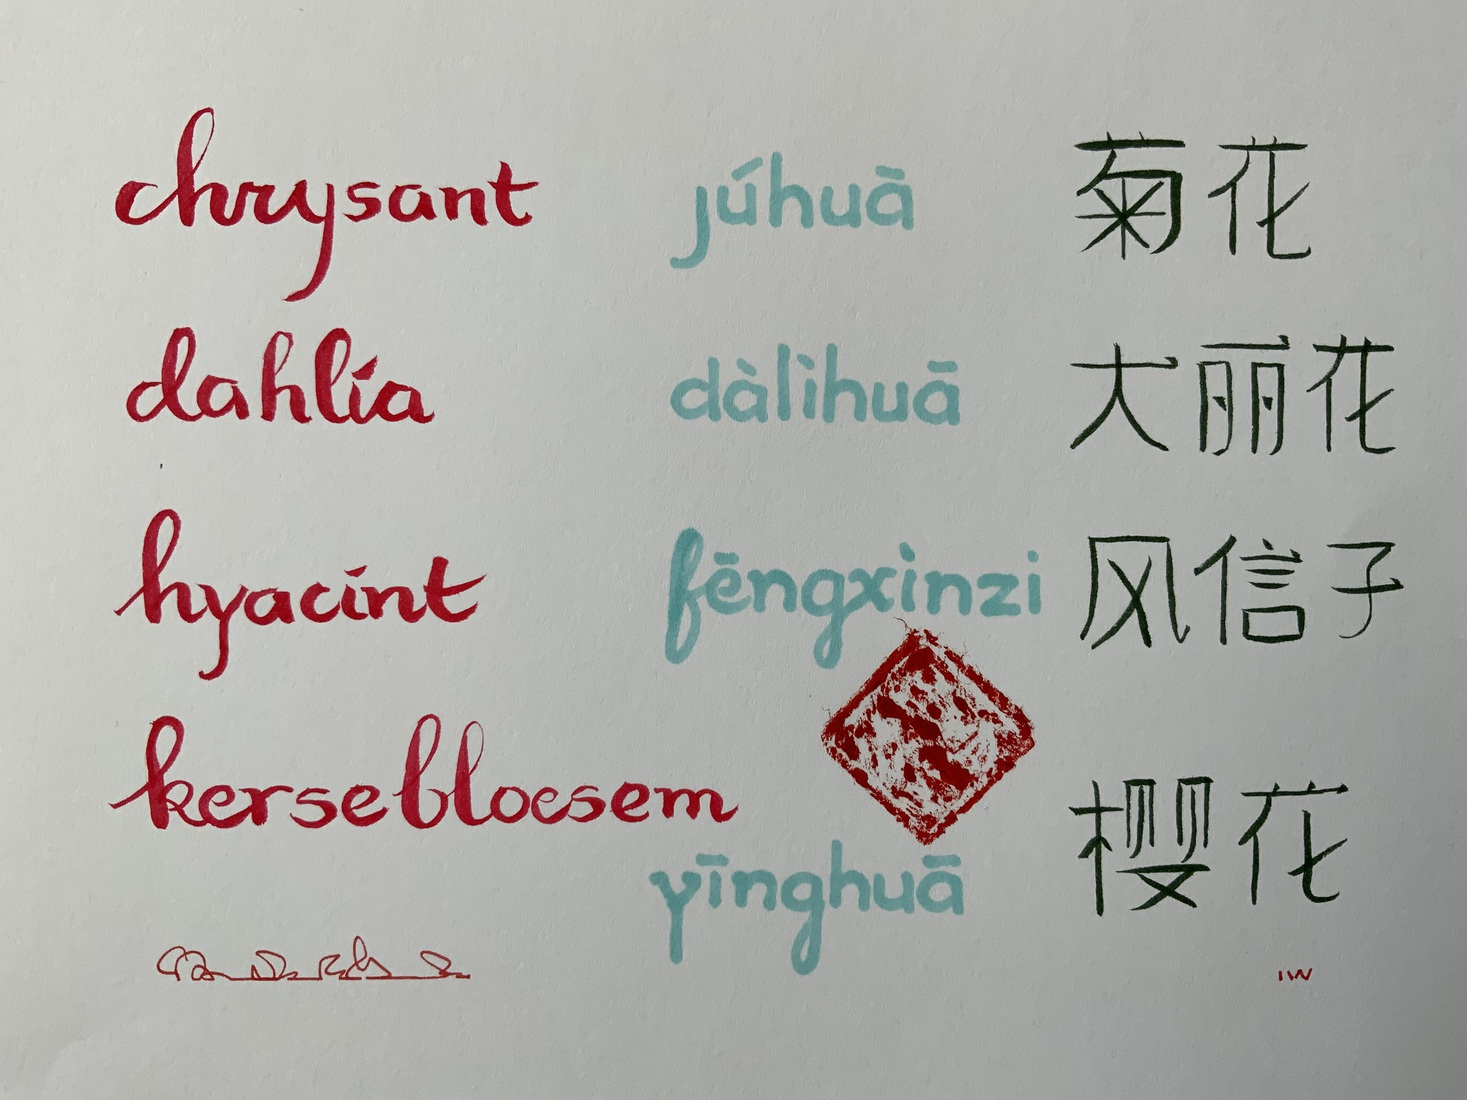 chrysant júhuā 菊花
dahlia dàlìhuā 大丽花
hyacint fēngxìnzi 风信子
kersebloesem
yīnghuā 樱花
IW